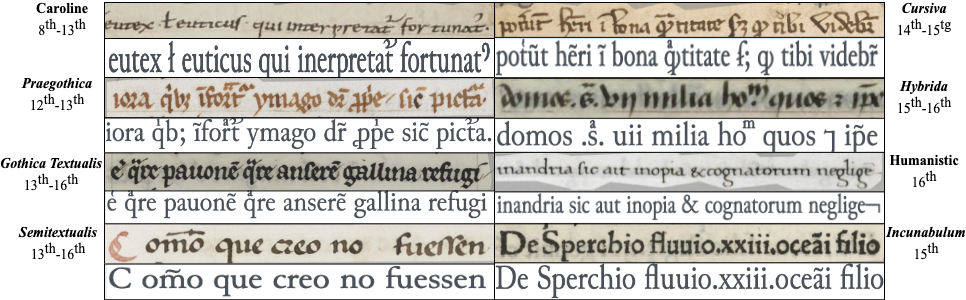 Caroline
8th-13th
eutex ł euticus qui interpretat᷑ fortunat᷑.
eutex ł euticus qui inerpretat᷑ fortunatꝰ
Praegothica
12th-13th
iora qͥb; ĩforͣt᷑ ymago dr̃ ꝓp̃e sic̃ pictᷓa.
iora qͥb; ĩforͣt᷑ ymago dr̃ ꝓp̃e sic̃ pictᷓa.
Gothica Textualis
13th-16th
e̓ qᷓre pauonẽ qᷓre anserẽ gallina refugi
e̓ qᷓre pauonẽ qᷓre anserẽ gallina refugi
Semitextualis
13th-16th
C om̃o que creo no fuessen
C om̃o que creo no fuessen
Cursiva
14th-15tg
potũt hẽri ĩ bona qᷓtitate ł; ꝙ tibi videbr̃
potũt hẽri ĩ bona qᷓtitate ł; ꝙ tibi videbr̃
Hybrida
15th-16th
domos .sͣ. uii milia hoᵐ quos ⁊ ip̃e
domos .sͣ. uii milia hoᵐ quos ⁊ ip̃e
Humanistic
16th
inandria sic aut inopia & cognatorum neglige¬
inandria sic aut inopia & cognatorum neglige¬
Incunabulum
15th
De Sperchio fluuio.xxiii.oceãi filio
De Sperchio fluuio.xxiii.oceãi filio